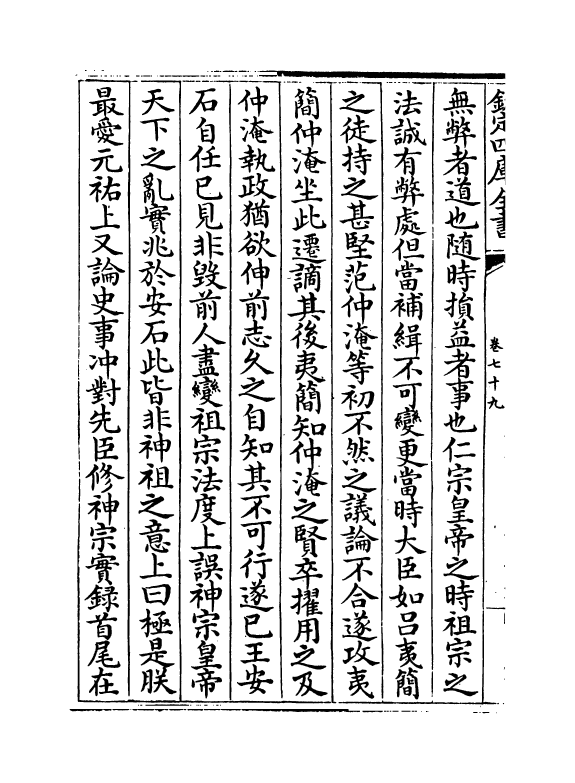 欽定四庫全書
卷七十九
無弊者道也随時損益者事也仁宗皇帝之時祖宗之
法誠有弊處但當補緝不可變更當時大臣如吕夷簡
之徒持之甚堅范仲淹等初不然之議論不合遂攻夷
簡仲淹坐此遷謫其後夷簡知仲淹之賢卒擢用之及
仲淹執政猶欲伸前志久之自知其不可行遂已王安
石自任已見非毀前人盡變祖宗法度上誤神宗皇帝
天下之亂實兆於安石此皆非神祖之意上曰極是朕
最愛元祐上又論史事冲對先臣修神宗實録首尾在